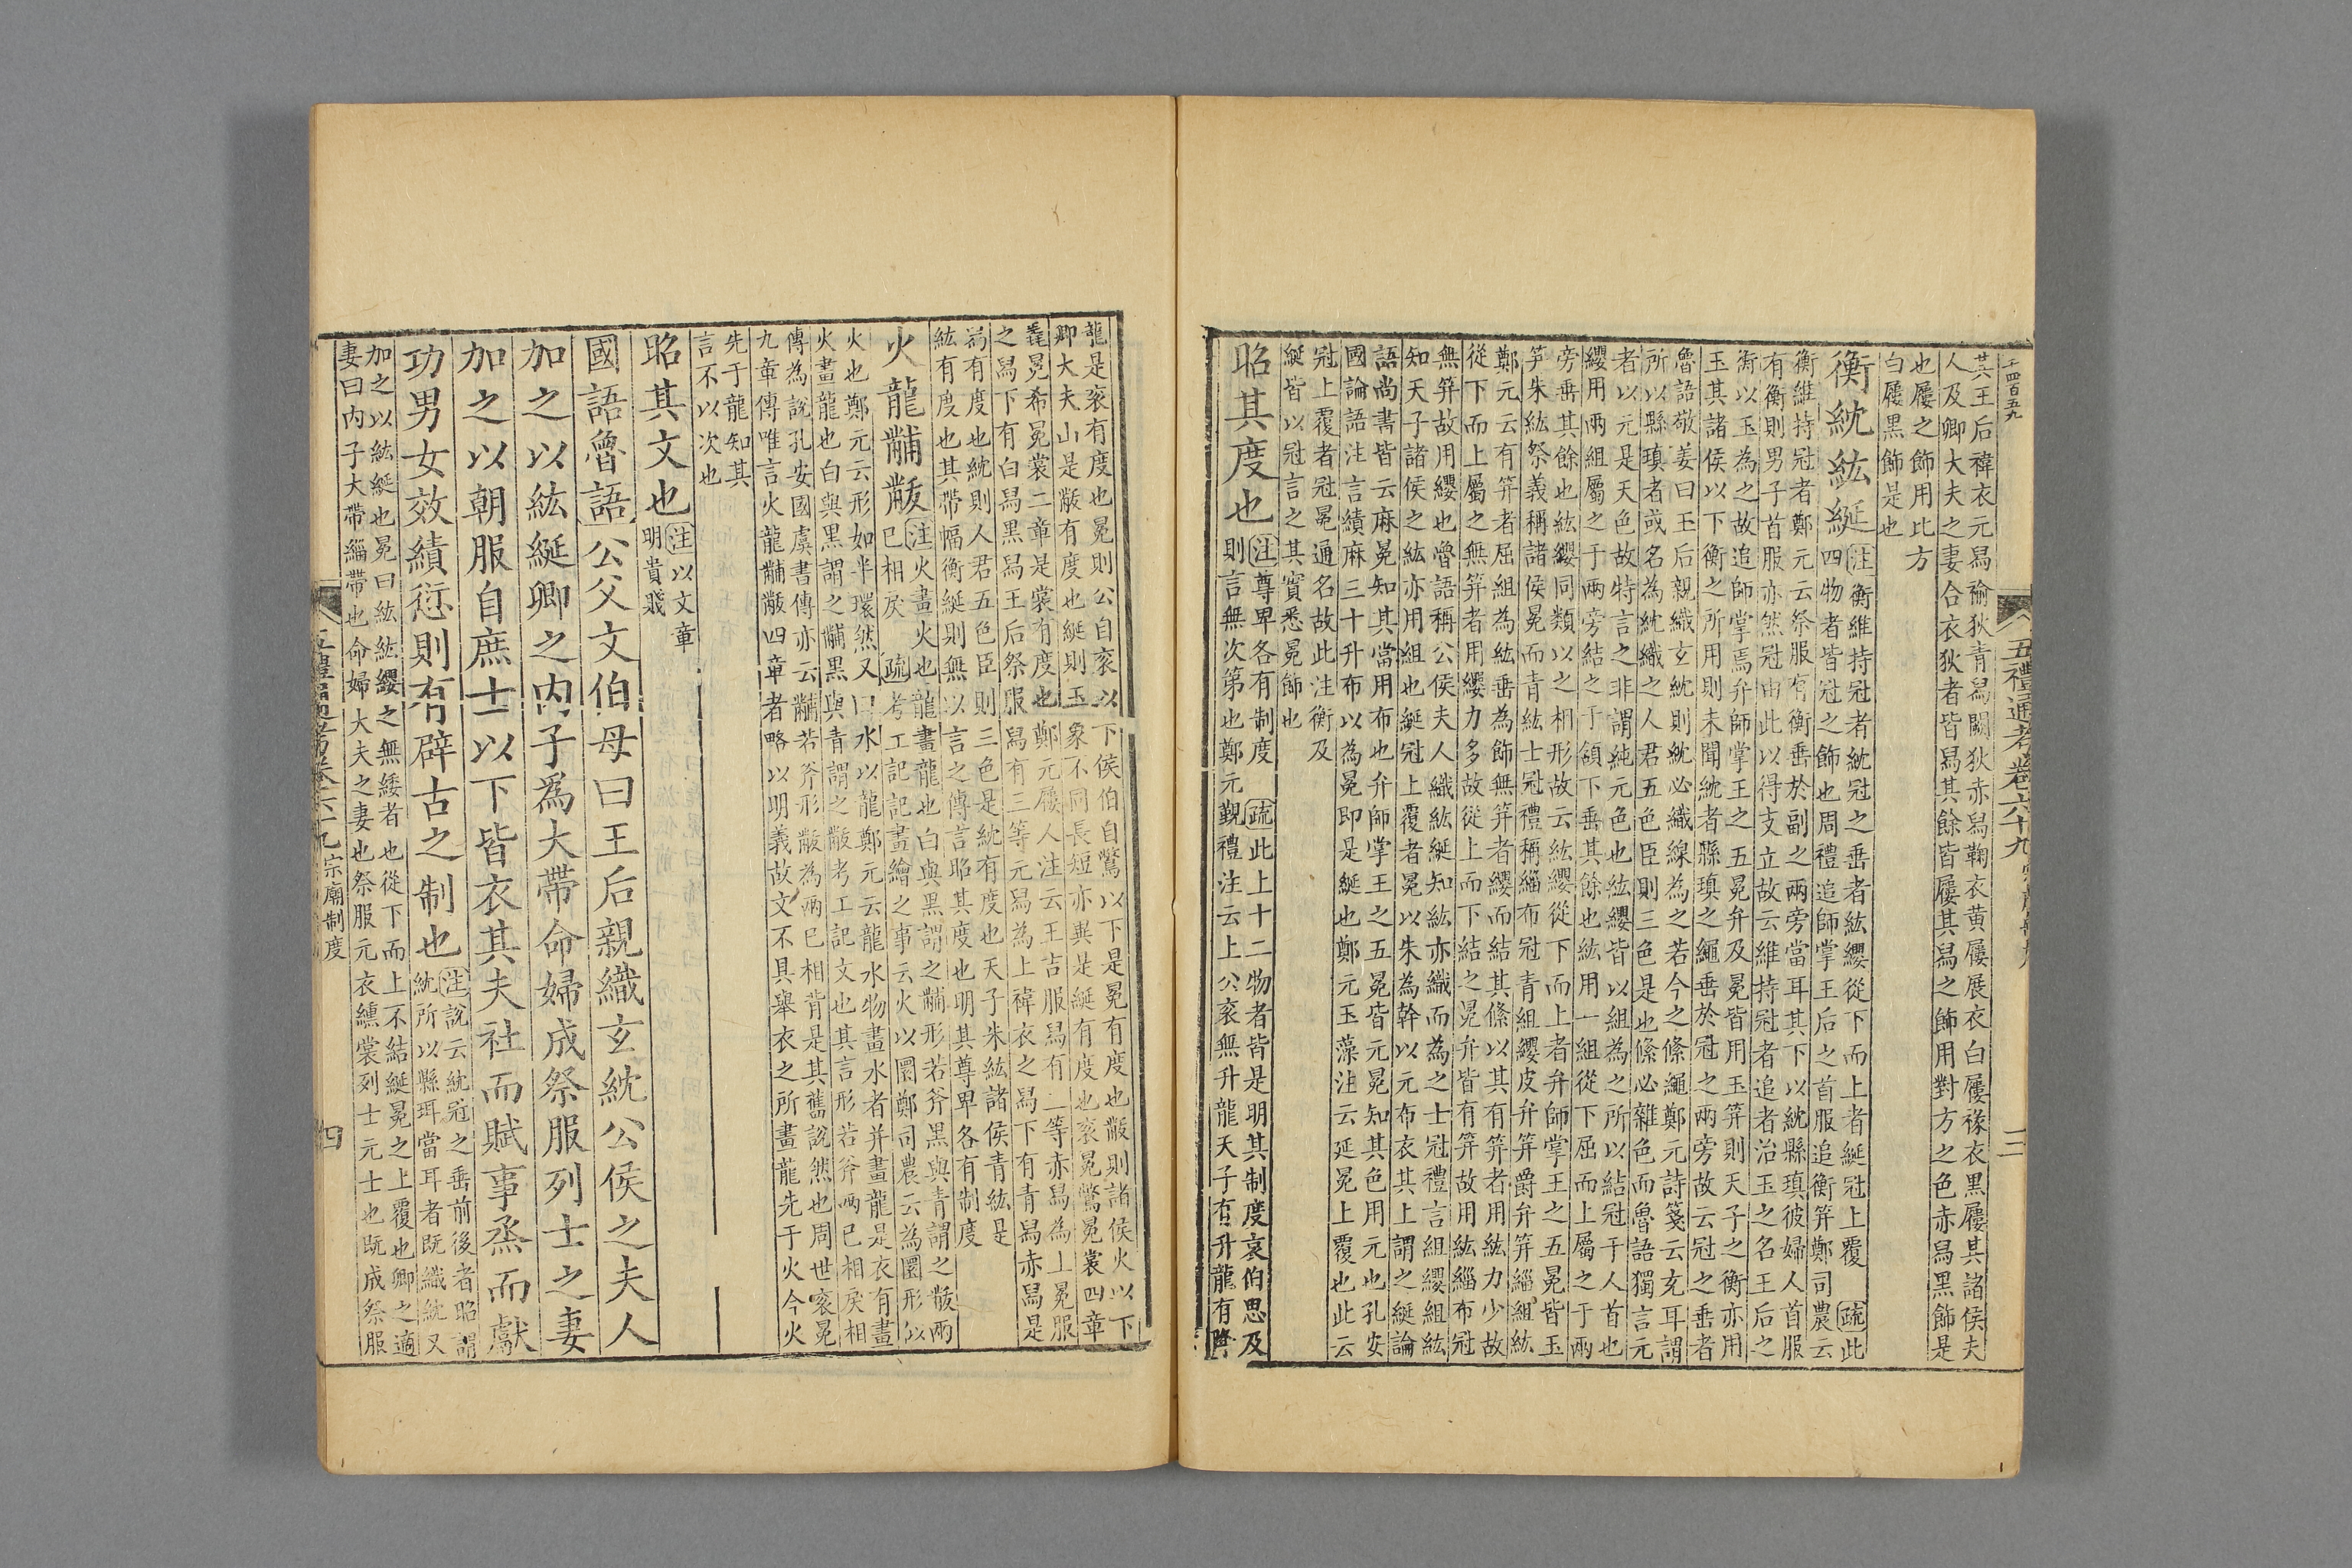 千四百五九
五禮通考卷六十九
三
其王后褘衣元舄褕狄青舄闕狄赤舄鞠衣黄屨展衣白屨褖衣黑屨其諸侯夫
人及卿大夫之妻合衣狄者皆舄其餘皆屨其舄之飾用對方之色赤舄黑飾是
也屨之飾用比方
白屨黑飾是也
衡紞紘綖注衡維持冠者紞冠之垂者紘纓從下而上者綖冠上覆 疏此
四物者皆冠之飾也周禮追師掌王后之首服追衡笄鄭司農云
衡維持冠者鄭元云祭服有衡垂於副之兩旁當耳其下以紞縣瑱彼婦人首服
有衡則男子首服亦然冠由此以得支立故云維持冠者追者治玉之名王后之
衡以玉為之故追師掌焉弁師掌王之五冕弁及冕皆用玉笄則天子之衡亦用
玉其諸侯以下衡之所用則未聞紞者縣瑱之繩垂於冠之兩旁故云冠之垂者
魯語敬姜曰王后親織玄紞則紞必織線為之若今之絛繩鄭元詩箋云玄耳謂
所以縣瑱者或名為紞織之人君五色臣則三色是也絛必雜色而魯語獨言元
者以元是天色故特言之非謂純元色也紘纓皆以組為之所以結冠于人首也
纓用兩組屬之于兩旁結之于頷下垂其餘也紘用一組從下屈而上屬之于兩
旁垂其餘也紘纓同類以之相形故云紘纓從下而上者弁師掌王之五冕皆玉
笄朱紘祭義稱諸侯冕而青紘士冠禮稱緇布冠青組纓皮弁笄爵弁笄緇組紘
鄭元云有笄者屈組為紘垂為飾無笄者纓而結其絛以其有笄者用紘力少故
從下而上屬之無笄者用纓力多故從上而下結之冕弁皆有笄故用紘緇布冠
無笄故用纓也魯語稱公侯夫人織紘綖知紘亦織而為之士冠禮言組纓組紘
知天子諸侯之紘亦用組也綖冠上覆者冕以朱為幹以元布衣其上謂之綖論
語尚書皆云麻冕知其當用布也弁師掌王之五冕皆元冕知其色用元也孔安
國論語注言績麻三十升布以為冕即是綖也鄭元玉藻注云延冕上覆也此云
冠上覆者冠冕通名故此注衡及
綖皆以冠言之其實悉冕飾也
昭其度也注尊卑各有制度 疏此上十二物者皆是明其制度哀伯思及
則言無次第也鄭元覲禮注云上公衮無升龍天子有升龍有降
龍是衮有度也冕則公自衮以下侯伯自鷩以下是冕有度也黻則諸侯火以下
卿大夫山是黻有度也綖則玉象不同長短亦異是綖有度也衮冕鷩冕裳四章
毳冕希冕裳二章是裳有度也鄭元屨人注云王吉服舄有三等赤舄為上冕服
之舄下有白舄黑舄王后祭服舄有三等元舄為上褘衣之舄下有青舄赤舄是
舄有度也紞則人君五色臣則三色是紞有度也天子朱紘諸侯青紘是
紘有度也其帶幅衡綖則無以言之傳言昭其度也明其尊卑各有制度
火龍黼黻注火畫火也龍畫龍也白與黑謂之黼形若斧黑與青謂之黻兩
已相戾 疏考工記記畫繪之事云火以圜鄭司農云為圜形似
火也鄭元云形如半環然又曰水以龍鄭元云龍水物畫水者并畫龍是衣有畫
火畫龍也白與黑謂之黼黑與青謂之黻考工記文也其言形若斧兩已相戾相
傳為說孔安國虞書傳亦云黼若斧形黻為兩已相背是其舊說然也周世衮冕
九章傳唯言火龍黼黻四章者略以明義故文不具舉衣之所畫龍先于火今火
先于龍知其
言不以次也
昭其文也注以文章
明貴賤
國語魯語公父文伯母曰王后親織玄紞公侯之夫人
加之以紘綖卿之内子為大帶命婦成祭服列士之妻
加之以朝服自庶士以下皆衣其夫社而賦事烝而獻
功男女效績愆則有辟古之制也注說云紞冠之垂前後者昭謂
紞所以縣珥當耳者既織紞又
加之以紘綖也冕曰紘紘纓之無緌者也從下而上不結綖冕之上覆也卿之適
妻曰内子大帶緇帶也命婦大夫之妻也祭服元衣纁裳列士元士也既成祭服
五禮通考卷六十九宗廟制度
四